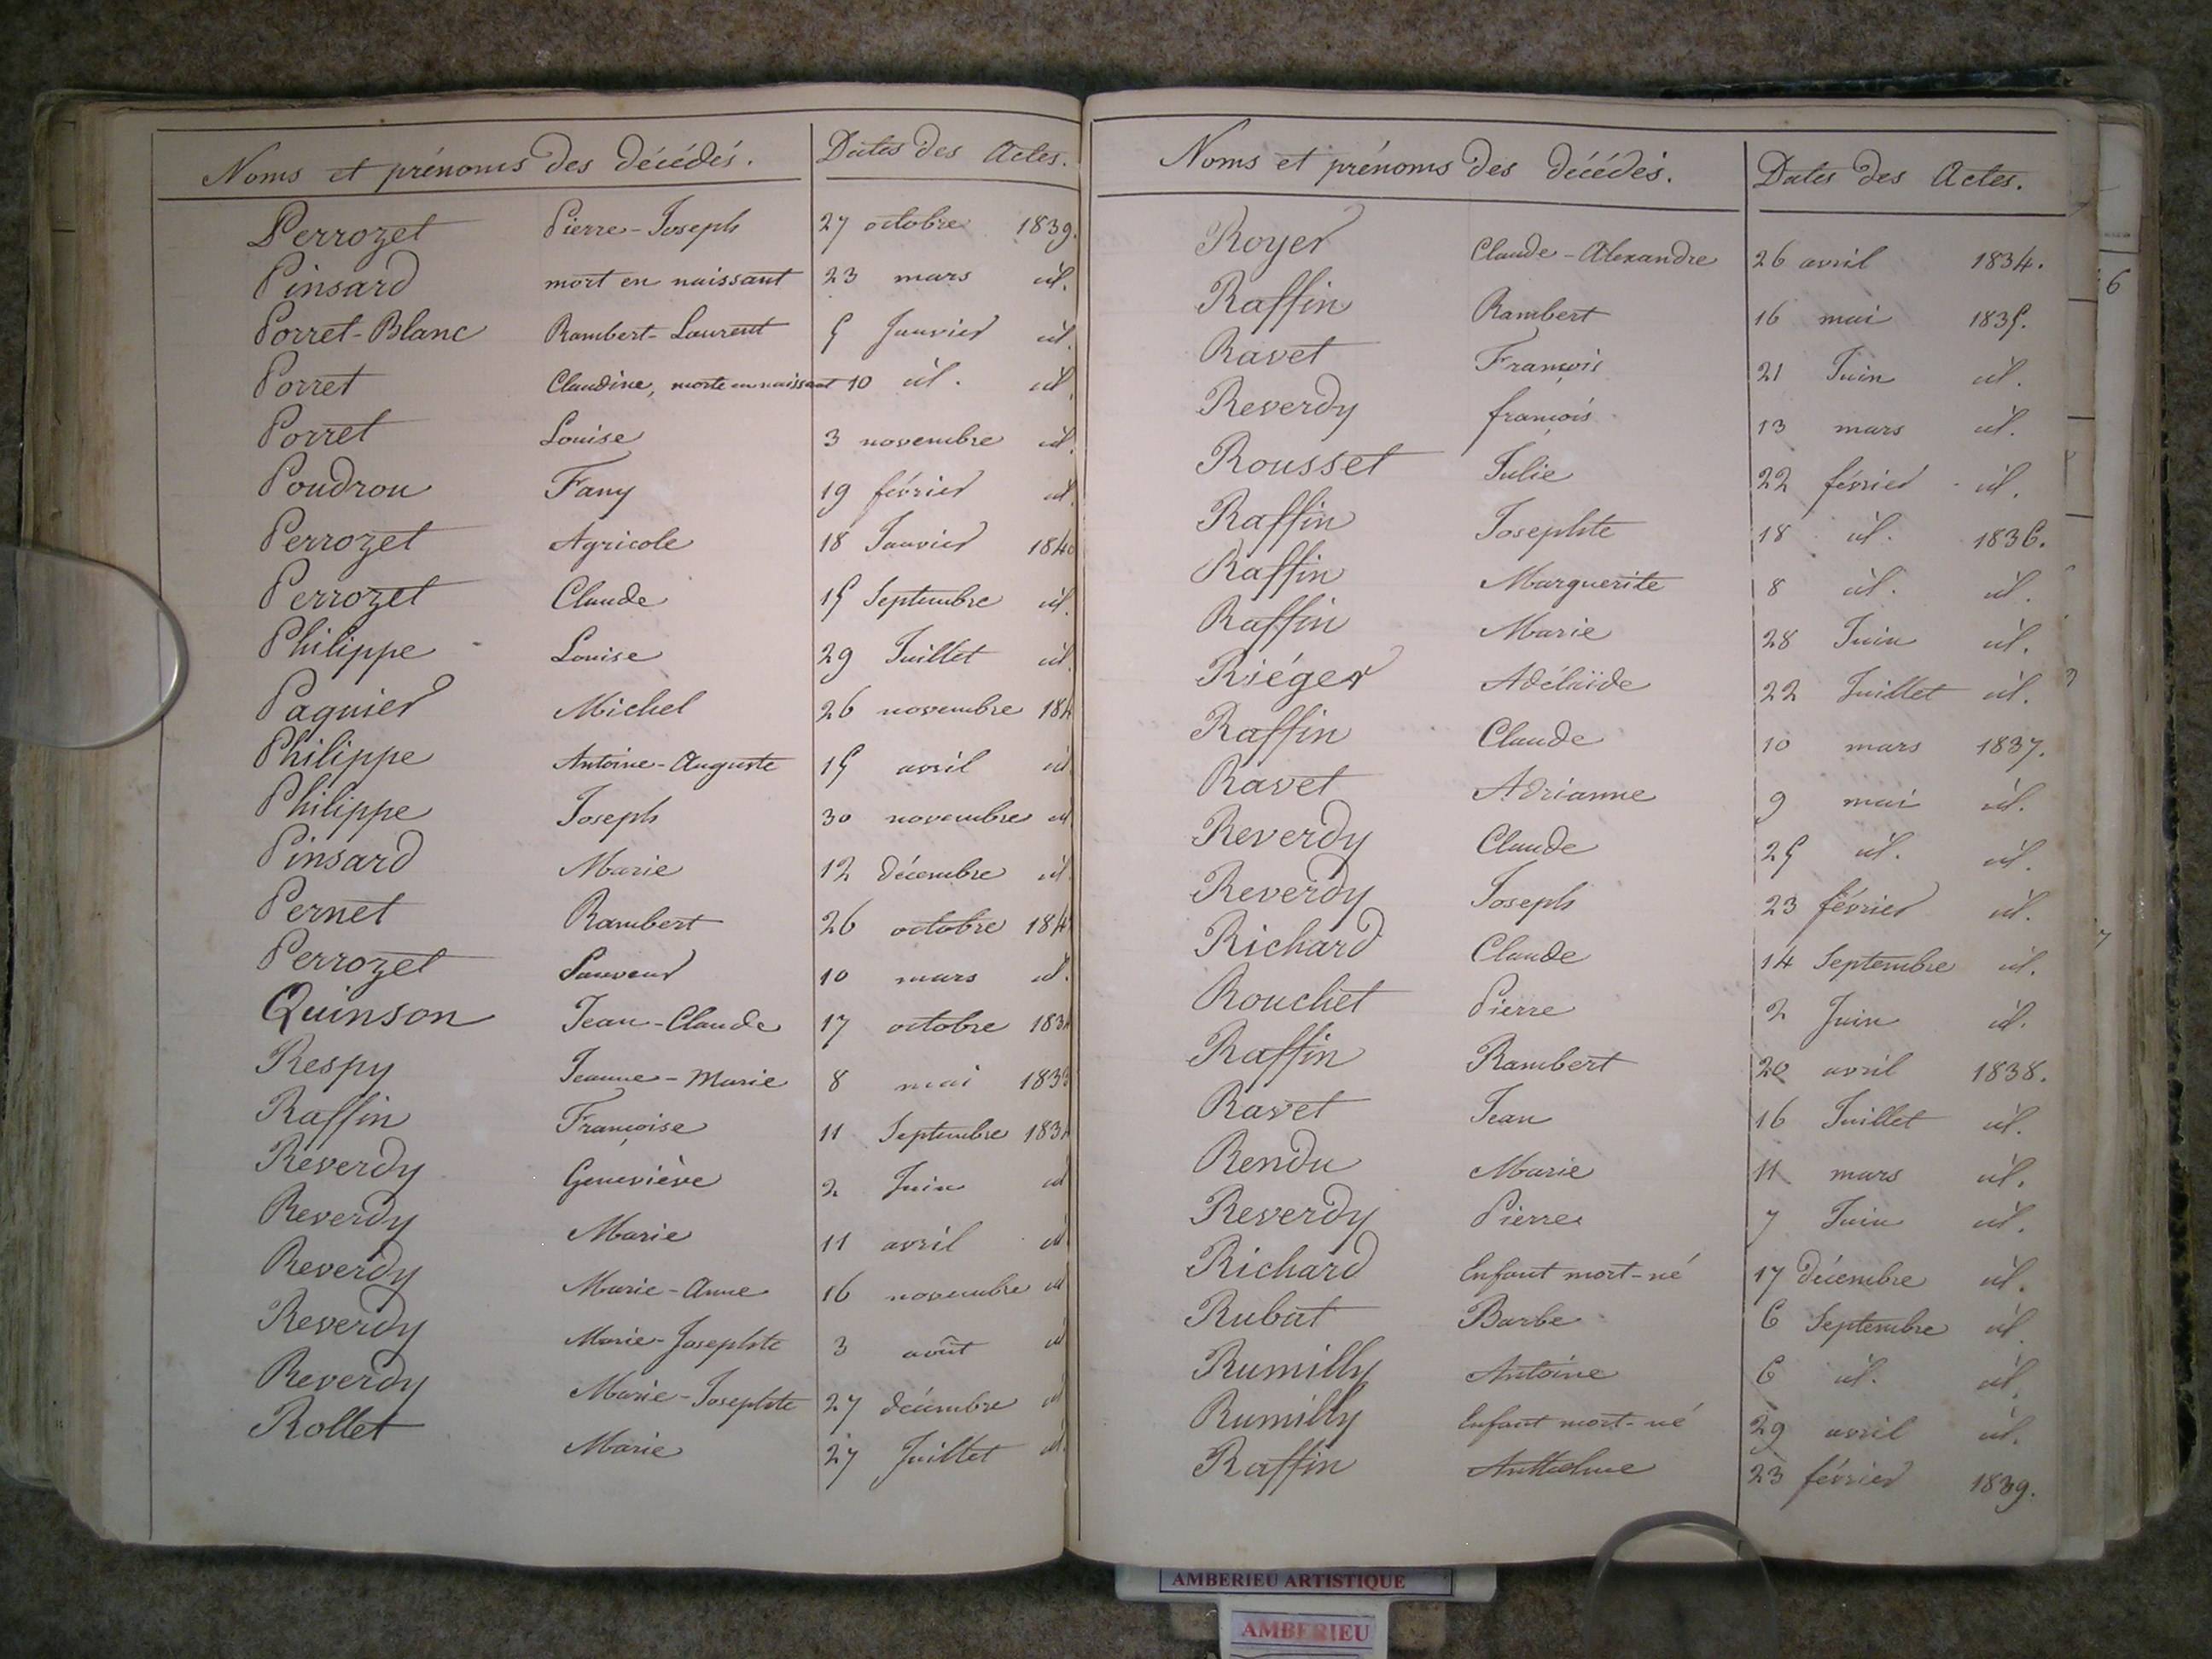 Noms et prénoms des décédés. Dates des Actes.
Perrozet Pierre-Joseph 27 octobre 1839.
Pinsard mort en naissant 23 mars id.
Porret-Blanc Rambert-Laurent 5 Janvier id.
Porret Claudine, morte en naissant 10 id. id.
Porret Louise 3 novembre id.
Poudrou Fany 19 février id.
Perrozet Agricole 18 Janvier 1840
Perrozet Claude 15 Septembre id.
Philippe Louise 29 Juillet id.
Pagnier Michel 26 novembre 184
Philippe Antoine-Auguste 15 avril id
Philippe Joseph 30 novembre id
Pinsard Marie 12 décembre id.
Pernet Rambert 26 octobre 184
Perrozet Sauveur 10 mars id.
Quinson Jean-Claude 17 octobre 183
Respy Jeanne-Marie 8 mai 1833
Raffin Françoise 11 Septembre 183
Reverdy Geneviève 2 Juin id
Reverdy Marie 11 avril id
Reverdy Marie-Anne 16 novembre id
Reverdy Marie-Josephte 3 août id
Reverdy Marie-Josephte 27 décembre id
Rollet Marie 27 Juillet id.
Noms et prénoms des décédés. Dates des Actes.
Royer Claude-Alexandre 26 avril 1834.
Raffin Rambert 16 mai 1835.
Ravet François 21 Juin id.
Reverdy françois 13 mars id.
Rousset Julie 22 février id.
Raffin Josephte 18 id. 1836.
Raffin Marguerite 8 id. id.
Raffin Marie 28 Juin id.
Riéger Adélaïde 22 Juillet id.
Raffin Claude 10 mars 1837.
Ravet Adrianne 9 mai id.
Reverdy Claude 25 id. id.
Reverdy Joseph 23 février id.
Richard Claude 14 Septembre id.
Rouchet Pierre 2 Juin id.
Raffin Rambert 20 avril 1838.
Ravet Jean 16 Juillet id.
Rendu Marie 11 mars id.
Reverdy Pierre 7 Juin id.
Richard Enfant mort-né 17 décembre id.
Rubat Barbe 6 Septembre id.
Rumilly Antoine 6 id. id.
Rumilly Enfant mort-né 29 avril id.
Raffin Anthelme 23 février 1839.
6
AMBERIEU ARTISTIQUE
AMBERIEU